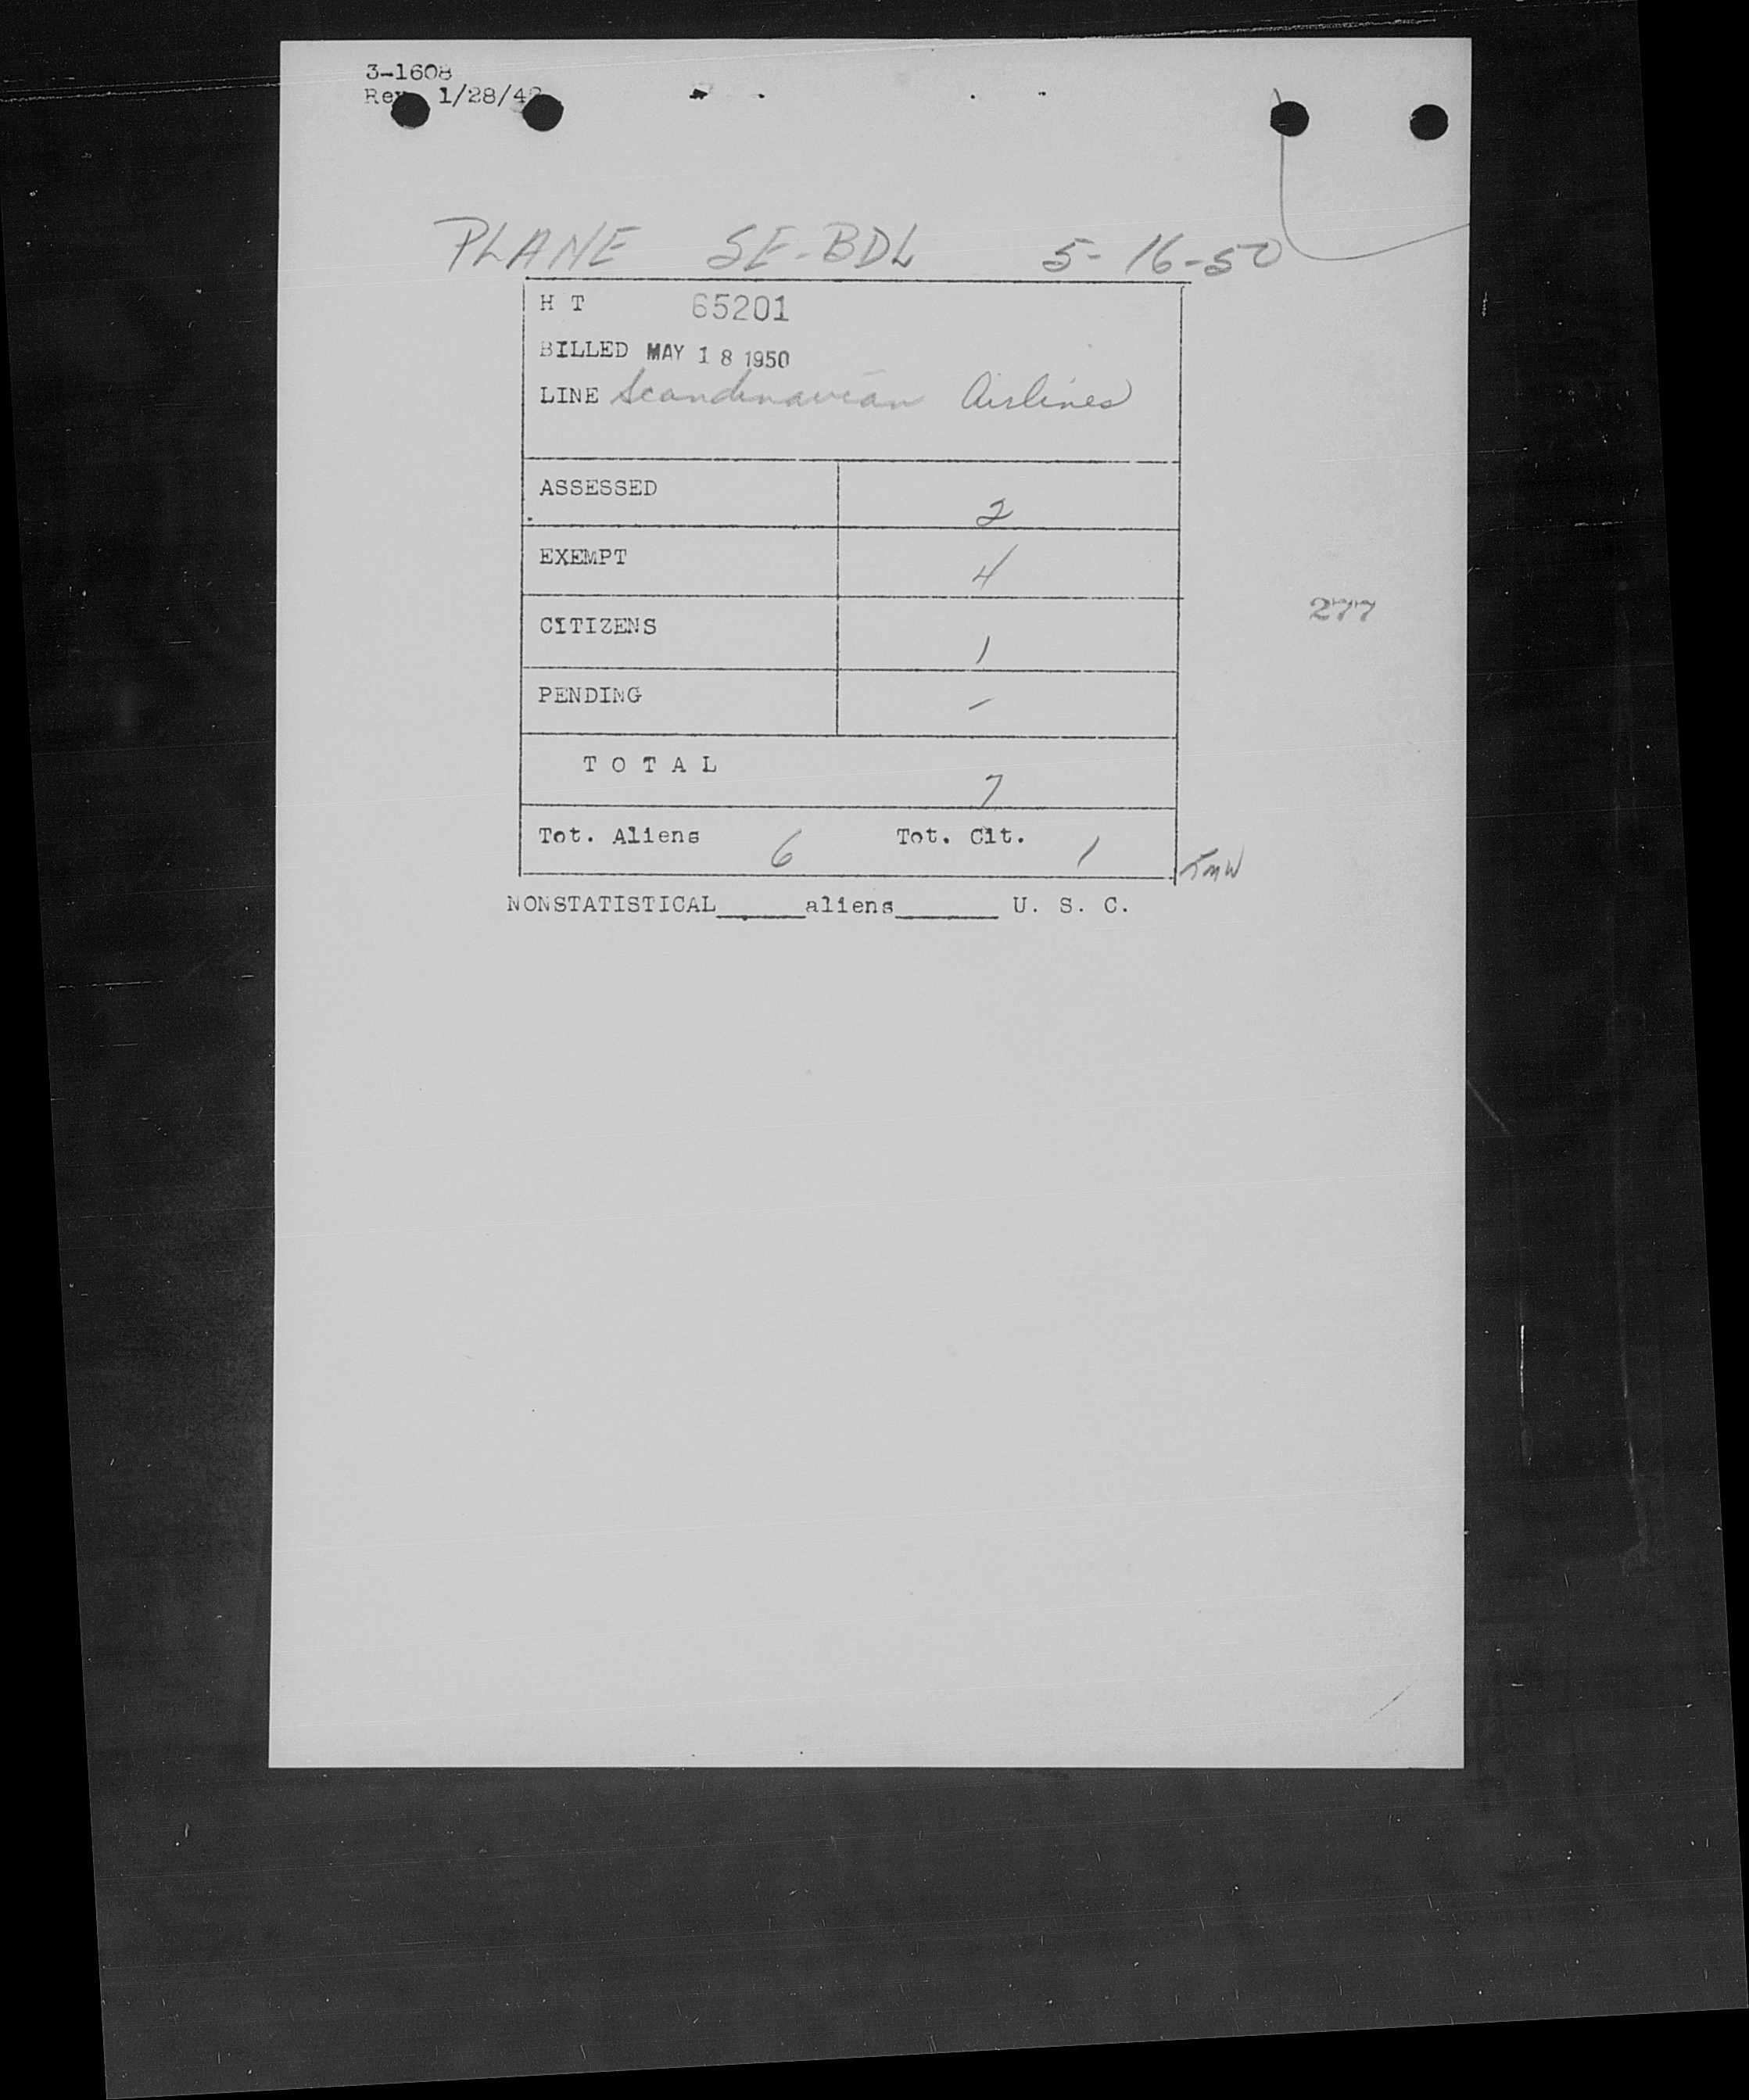 3-1608
Rev. 1/28/4
PLANE SE-BDL 5-16-50
H T 65201
BILLED MAY 18 1950
LINE Scandinavian Airlines
ASSESSED 2
EXEMPT 4
277
CITIZENS 1
PENDING -
TOTAL 7
Tot. Aliens 6 Tot. Cit. 1
NONSTATISTICAL______aliens_______ U. S. C.